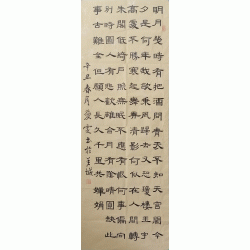 明月幾時有把酒問青天不知天宮闕今
夕是何年我欲乘風歸去又恐瓊樓玉宇
高處不勝寒起舞弄清影何似在人間轉
朱閣低綺戶照無眠不應有恨何事偏向
別時圓人有悲歡離合月有陰晴圓缺此
事古難全但願人長久千里共嬋娟
辛丑春月